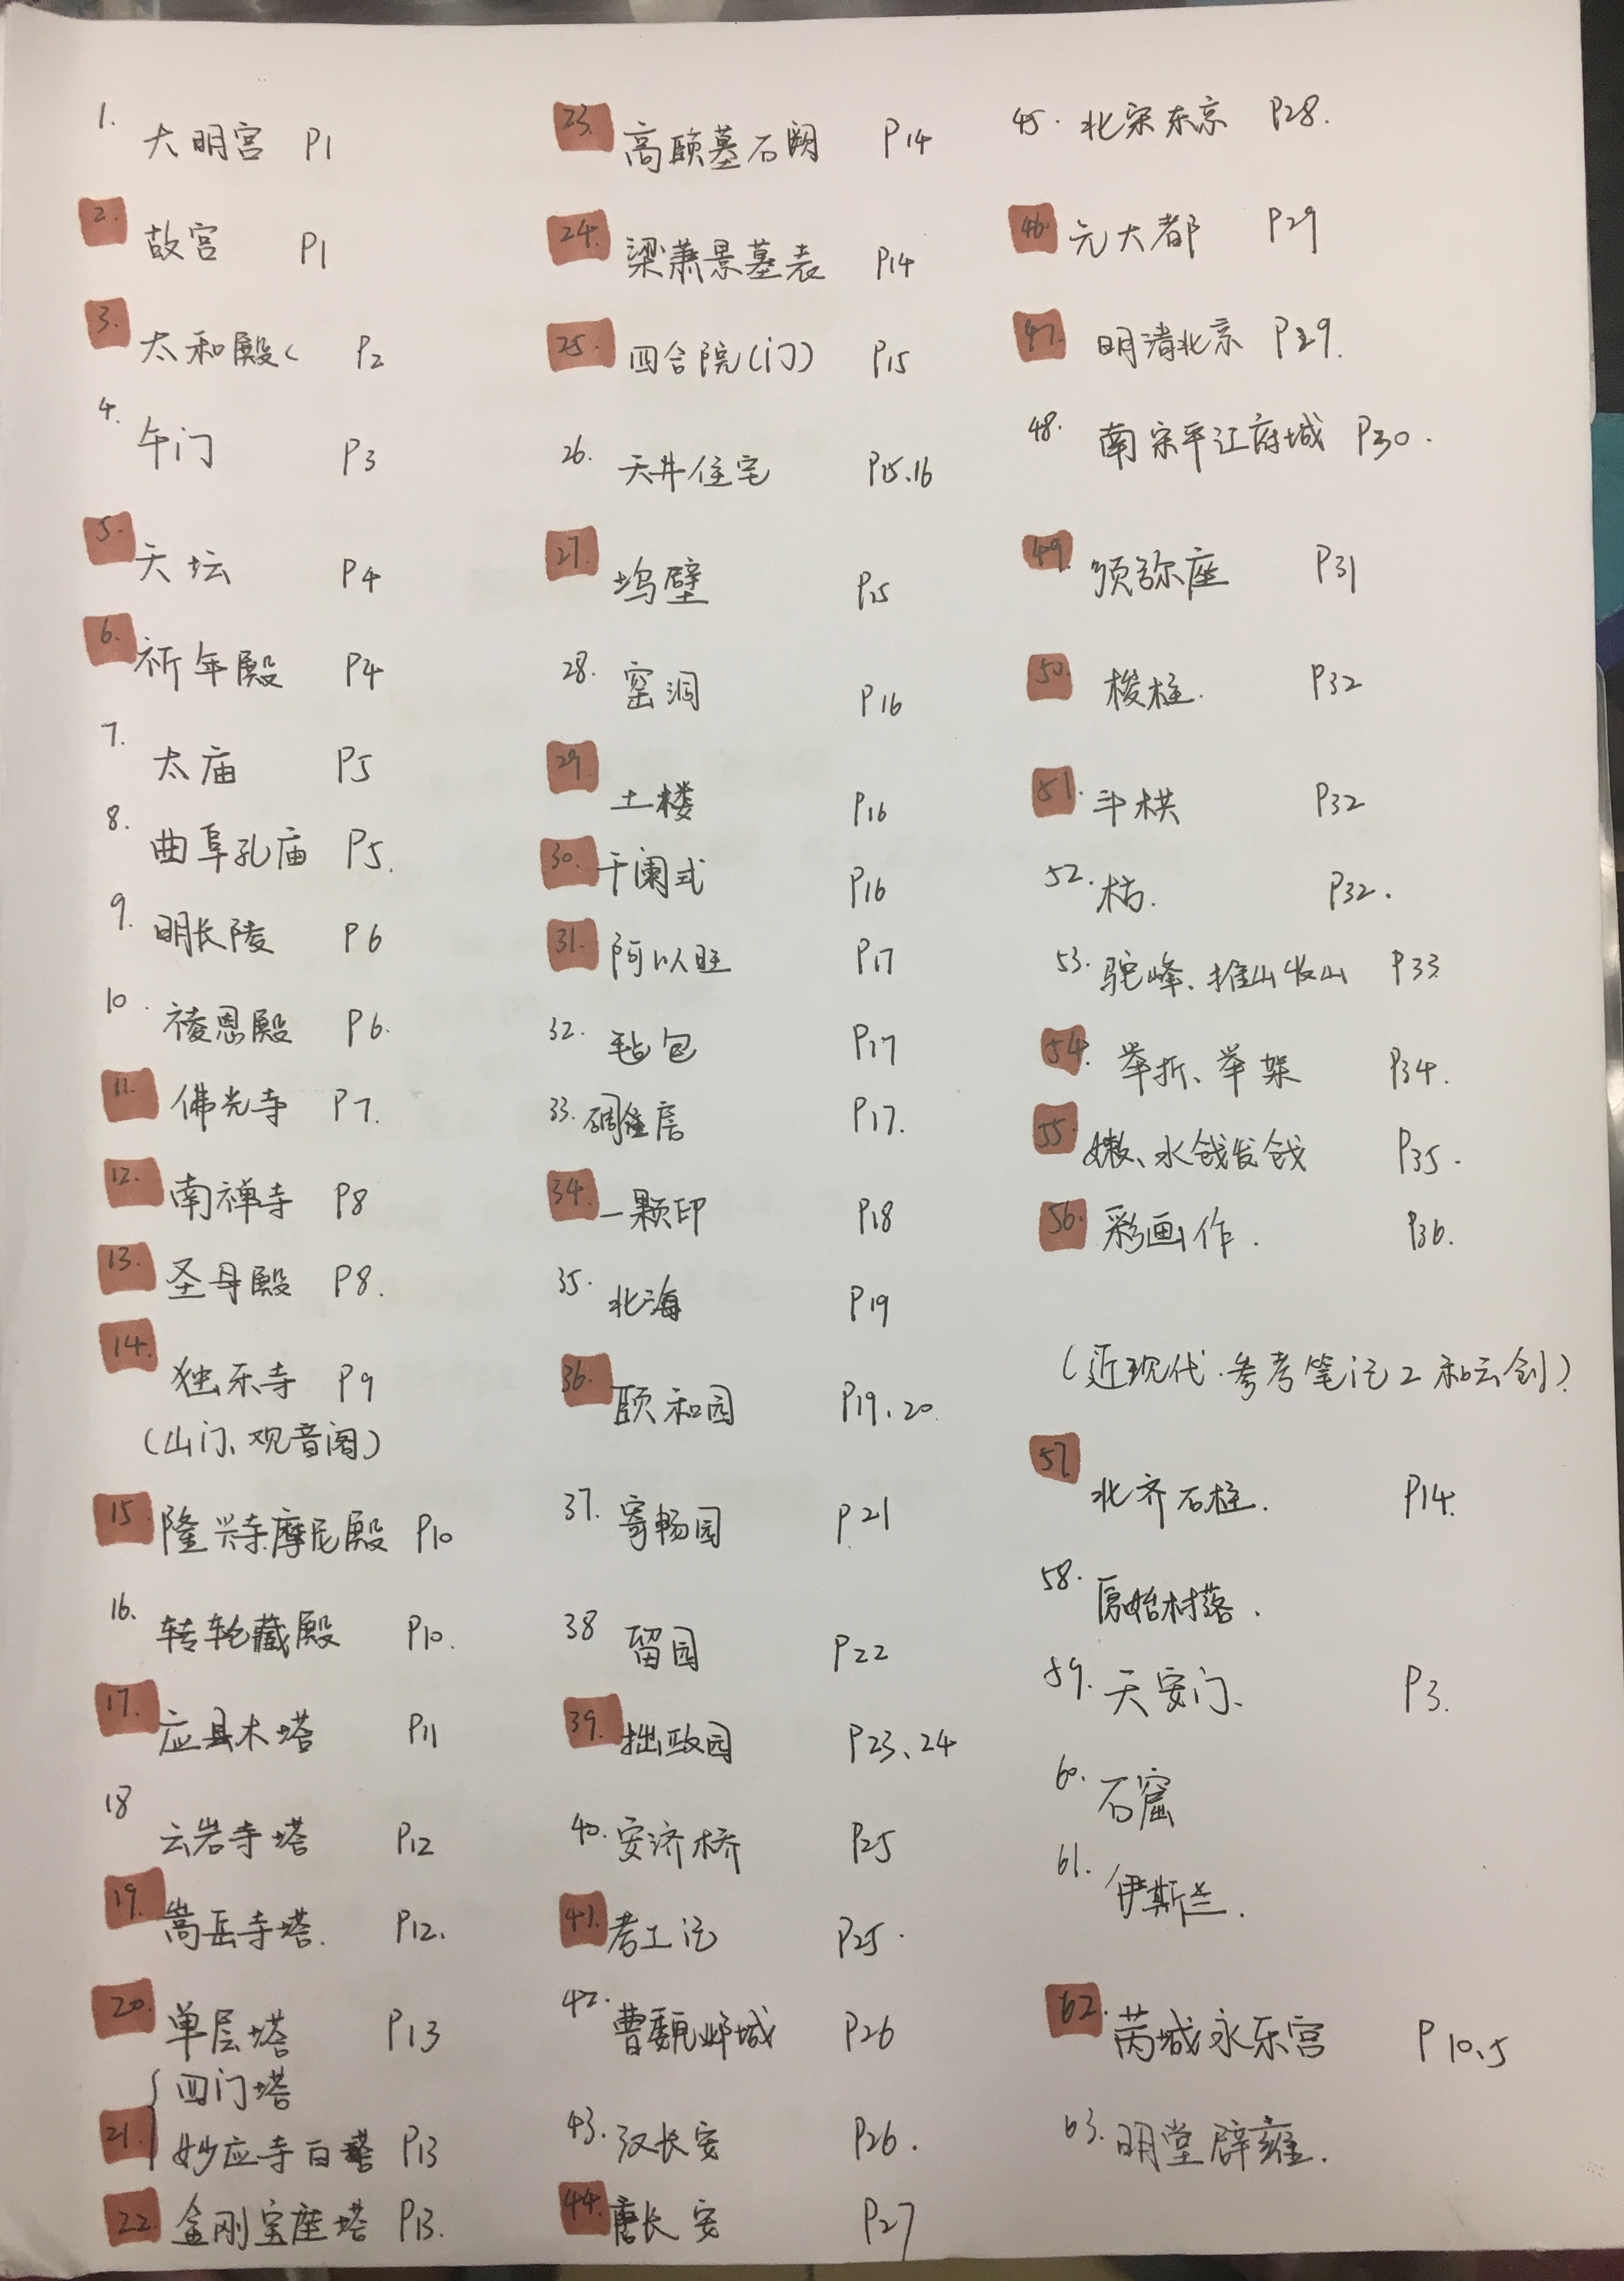 1. 大明宫 P1
2. 故宫 P1
3. 太和殿( P2
4. 午门 P3
5. 天坛 P4
6. 祈年殿 P4
7. 太庙 P5
8. 曲阜孔庙 P5.
9. 明长陵 P6
10. 祾恩殿 P6.
11. 佛光寺 P7.
12. 南禅寺 P8
13. 圣母殿 P8.
14. 独乐寺 P9
(山门、观音阁)
15. 隆兴寺摩尼殿 P10
16. 转轮藏殿 P10.
17. 应县木塔 P11
18 云岩寺塔 P12
19. 嵩岳寺塔. P12.
20. 单层塔 P13
四门塔
21. 妙应寺白塔 P13
22. 金刚宝座塔 P13.
23. 高颐墓石阙 P14
24. 梁萧景墓表 P14
25. 四合院(门) P15
26. 天井住宅 P15.16
27. 坞壁 P15
28. 窑洞 P16
29. 土楼 P16
30. 干阑式 P16
31. 阿以旺 P17
32. 毡包 P17
33. 碉住房 P17.
34. 一颗印 P18
35. 北海 P19
36. 颐和园 P19、20.
37. 寄畅园 P21
38 留园 P22
39. 拙政园 P23、24
40. 安济桥 P25
41. 考工记 P25.
42. 曹魏邺城 P26
43. 汉长安 P26.
44. 唐长安 P27
45. 北宋东京 P28.
46. 元大都 P29
47. 明清北京 P29.
48. 南宋平江府城 P30.
49. 须弥座 P31
50. 梭柱. P32
51. 斗栱 P32
52. 枋. P32.
53. 驼峰、推山收山 P33
54. 举折、举架 P34.
55. 水戗发戗 P35.
56. 彩画作. P36.
(近现代.参考笔记2和云剑)
57 北齐石柱. P14.
58. 原始村落.
59. 天安门、 P3.
60. 石窟
61. 伊斯兰.
62. 芮城永乐宫 P10.5
63. 明堂辟雍.